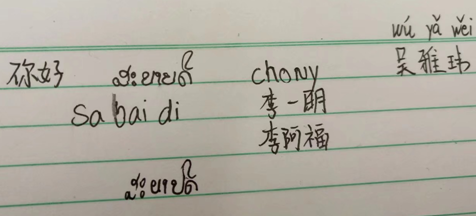 wú yǎ wěi
你好 ສະບາຍດີ chony 吴雅玮
Sa bai di 李一明
李阿福
ສະບາຍດີ